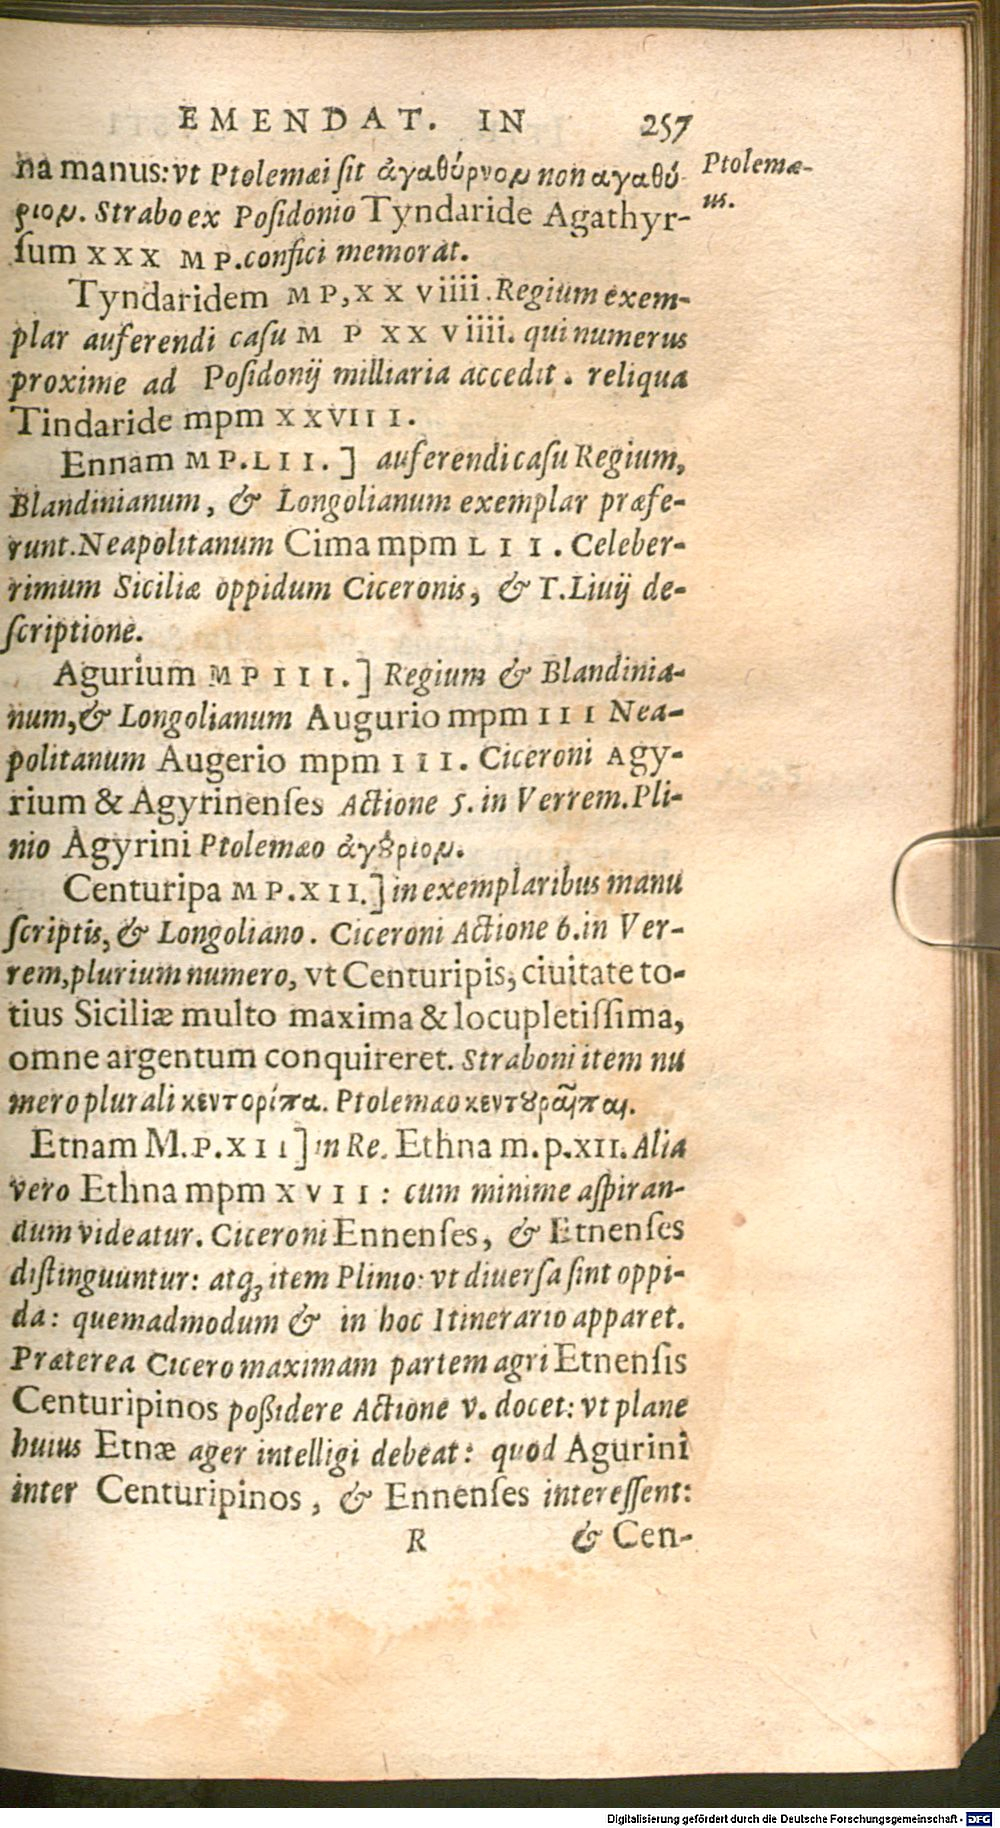 EMENDAT. IN 257
na manus: vt Ptolemæi sit ἀγαθύρνον non αγαθύ-
ριον. Strabo ex Posidonio Tyndaride Agathyr-
sum XXX MP. confici memorat.
Ptolemæ-
us.
Tyndaridem MP, XX viiii. Regium exem-
plar auferendi casu M P XX viiii. qui numerus
proxime ad Posidonij milliaria accedit. reliqua
Tindaride mpm XXVIII I.
Ennam MP. LII.] auferendi casu Regium,
Blandinianum, & Longolianum exemplar præfe-
runt. Neapolitanum Cima mpm LII. Celeber-
rimum Siciliæ oppidum Ciceronis, & T. Liuij de-
scriptione.
Agurium MP III.] Regium & Blandinia-
num, & Longolianum Augurio mpm III Nea-
politanum Augerio mpm III. Ciceroni Agy-
rium & Agyrinenses Actione 5. in Verrem. Pli-
nio Agyrini Ptolemæo ἀγȣριον.
Centuripa MP. XII.] in exemplaribus manu
scriptis, & Longoliano. Ciceroni Actione 6. in Ver-
rem, plurium numero, vt Centuripis, ciuitate to-
tius Siciliæ multo maxima & locupletissima,
omne argentum conquireret. Straboni item nu
mero plurali κεντορίπα. Ptolemæo κεντȣρᾶιπαι.
Etnam M.P. XII] in Re. Ethna m.p. XII. Alia
vero Ethna mpm XVII: cum minime aspiran-
dum videatur. Ciceroni Ennenses, & Etnenses
distinguuntur: atq; item Plinio: vt diuersa sint oppi-
da: quemadmodum & in hoc Itinerario apparet.
Præterea Cicero maximam partem agri Etnensis
Centuripinos poßidere Actione v. docet: vt plane
huius Etnæ ager intelligi debeat: quod Agurini
inter Centuripinos, & Ennenses interessent:
R & Cen-
Digitalisierung gefördert durch die Deutsche Forschungsgemeinschaft - DFG